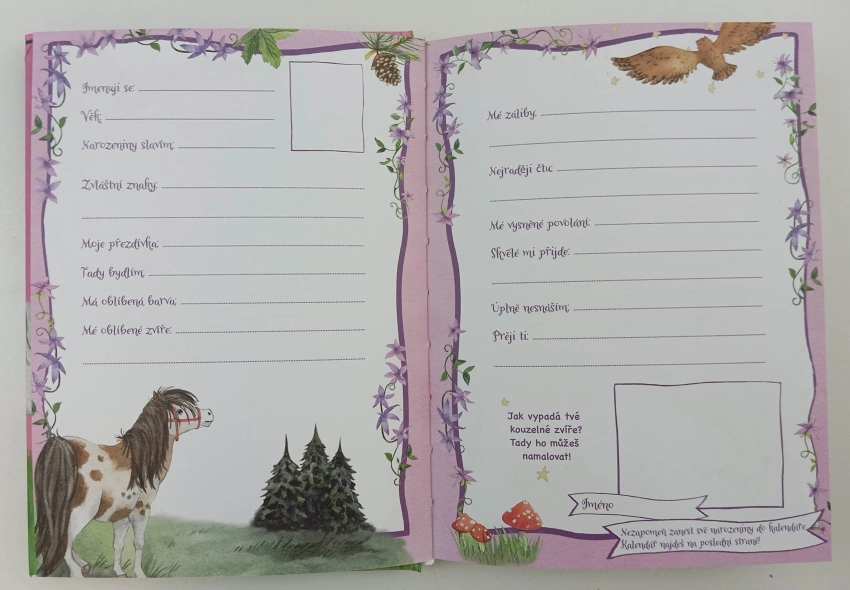 Jmenuji se:
Věk:
Narozeniny slavím:
Zvláštní znaky:
Moje přezdívka:
Tady bydlím:
Má oblíbená barva:
Mé oblíbené zvíře:
Mé záliby:
Nejraději čtu:
Mé vysněné povolání:
Skvělé mi přijde:
Úplně nesnáším:
Přeji ti:
Jak vypadá tvé
kouzelné zvíře?
Tady ho můžeš
namalovat!
Jméno
Nezapomeň zanést své narozeniny do kalendáře.
Kalendář najdeš na poslední straně!